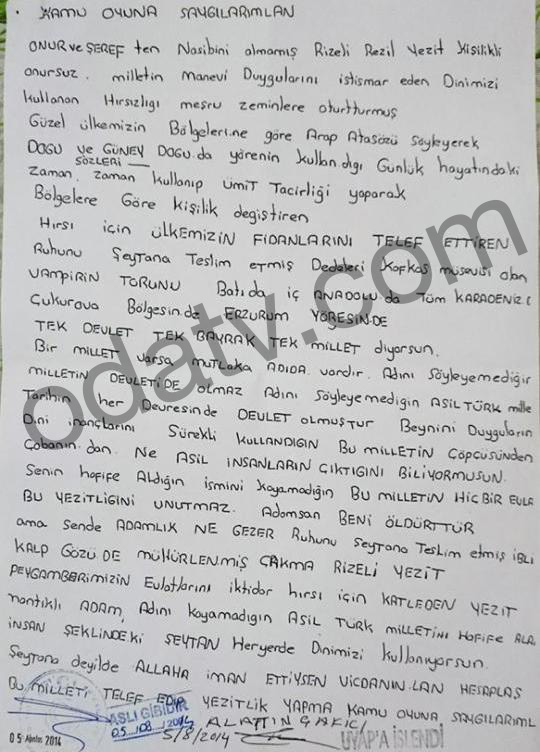 KAMU OYUNA SAYGILARIMLAN
ONUR ve ŞEREF ten Nasibini almamış Rizeli Rezil Yezit Kişilikli
onursuz. milletin Manevi Duygularını istismar eden Dinimizi
kullanan Hırsızlığı meşru zeminlere oturtturmuş
Güzel ülkemizin Bölgelerine göre Arap Atasözü söyleyerek
DOĞU ve GÜNEY DOĞU.da yörenin kullandığı Günlük hayatındaki
SÖZLERİ
zaman, zaman kullanıp ÜMİT Tacirliği yaparak
Bölgelere Göre kişilik değiştiren
Hırsı için ÜLKEMİZİN FİDANLARINI TELEF ETTİREN
Ruhunu Şeytana Teslim etmiş Dedeleri Kafkas musevisi olan
VAMPİRİN TORUNU Batıda iç ANADOLU.da Tüm KARADENİZ
Çukurova Bölgesin.de ERZURUM YÖRESİN.DE
TEK DEVLET TEK BAYRAK TEK MİLLET diyorsun.
Bir MİLLET varsa MUTLAKA ADIDA vardır. Adını Söyleyemediğin
MİLLETİN DEVLETİ.DE OLMAZ Adını Söyleyemediğin ASİL TÜRK mille
Tarihin her Devresinde DEVLET OLMUŞTUR Beynini Duyguların
Dini inançlarını Sürekli KULLANDIĞIN BU MİLLETİN ÇÖPÇÜSÜNDEN
Çobanın.dan. NE ASİL İNSANLARIN ÇIKTIĞINI BİLİYORMUSUN.
Senin hafife Aldığın ismini koyamadığın BU MİLLETİN HİÇ BİR EVLA
BU YEZİTLİĞİNİ UNUTMAZ. Adamsan BENİ ÖLDÜRTTÜR
ama sende ADAMLIK NE GEZER Ruhunu Şeytana Teslim etmiş İBLİ
KALP GÖZÜ DE MÜHÜRLENMİŞ ÇAKMA RİZELİ YEZİT
PEYGAMBERİMİZİN Evlatlarını iktidar hırsı için KATLEDEN YEZİT
mantıklı ADAM, Adını koyamadığın ASİL TÜRK MİLLETİNİ HAFİFE ALA
İNSAN ŞEKLİNDEKİ ŞEYTAN Heryerde Dinimizi kullanıyorsun.
Şeytana deyilde ALLAHA İMAN ETTİYSEN VİCDANIN.LAN HESAPLAŞ
BU MİLLETİ TELEF EDİP YEZİTLİK YAPMA KAMU OYUNA SAYGILARIML
ASLI GİBİDİR
05./08./2014
ALATTİN ÇAKICI
5/8/2014
UYAP'A İŞLENDİ
05 Ağustos 2014
odatv.com